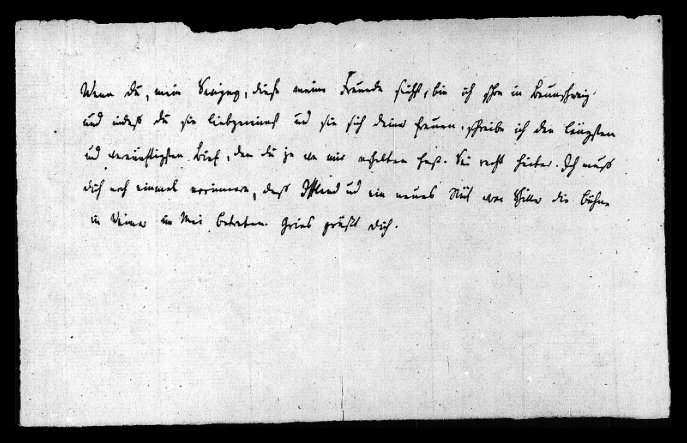 Wenn du, mein Savigny, diese meine Freunde siehst, bin ich schon in Braunschweig.
und indeß du sie liebgewinnst und sie sich deiner freuen, schreibe ich den längsten
und vernünftigsten Brief, den du je von mir erhalten hast. Sei recht heiter. Ich muß
dich noch einmal erinnern, daß Iffland und ein neues Stück von Schiller die Bühne
in Weimar im Mai betreten. Gries grüßt dich.